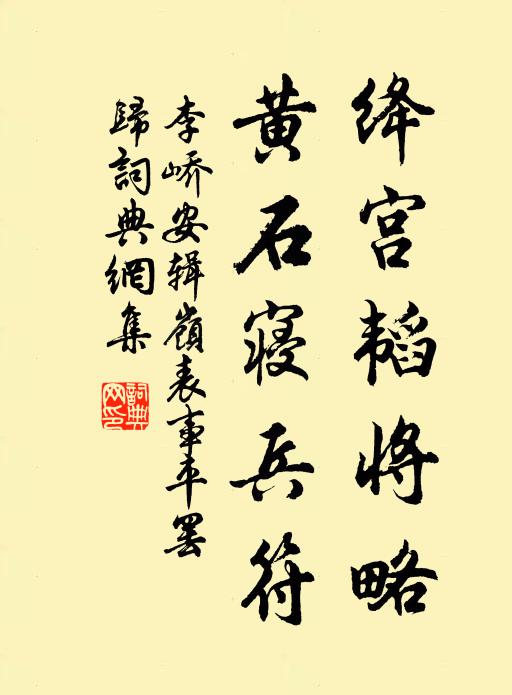 绛宫韬将略
黄石寝兵符
李峤安辑嶺表事平罢
歸詞典網集
詞典網印